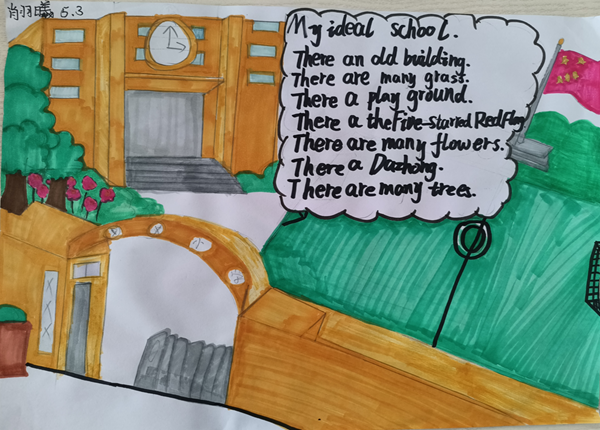 肖羽曦 5.3
My ideal school.
There an old building.
There are many grass.
There a play ground.
There a the Five-starred Red Flag
There are many flowers.
There a Dazhong.
There are many trees.
X X 小 学